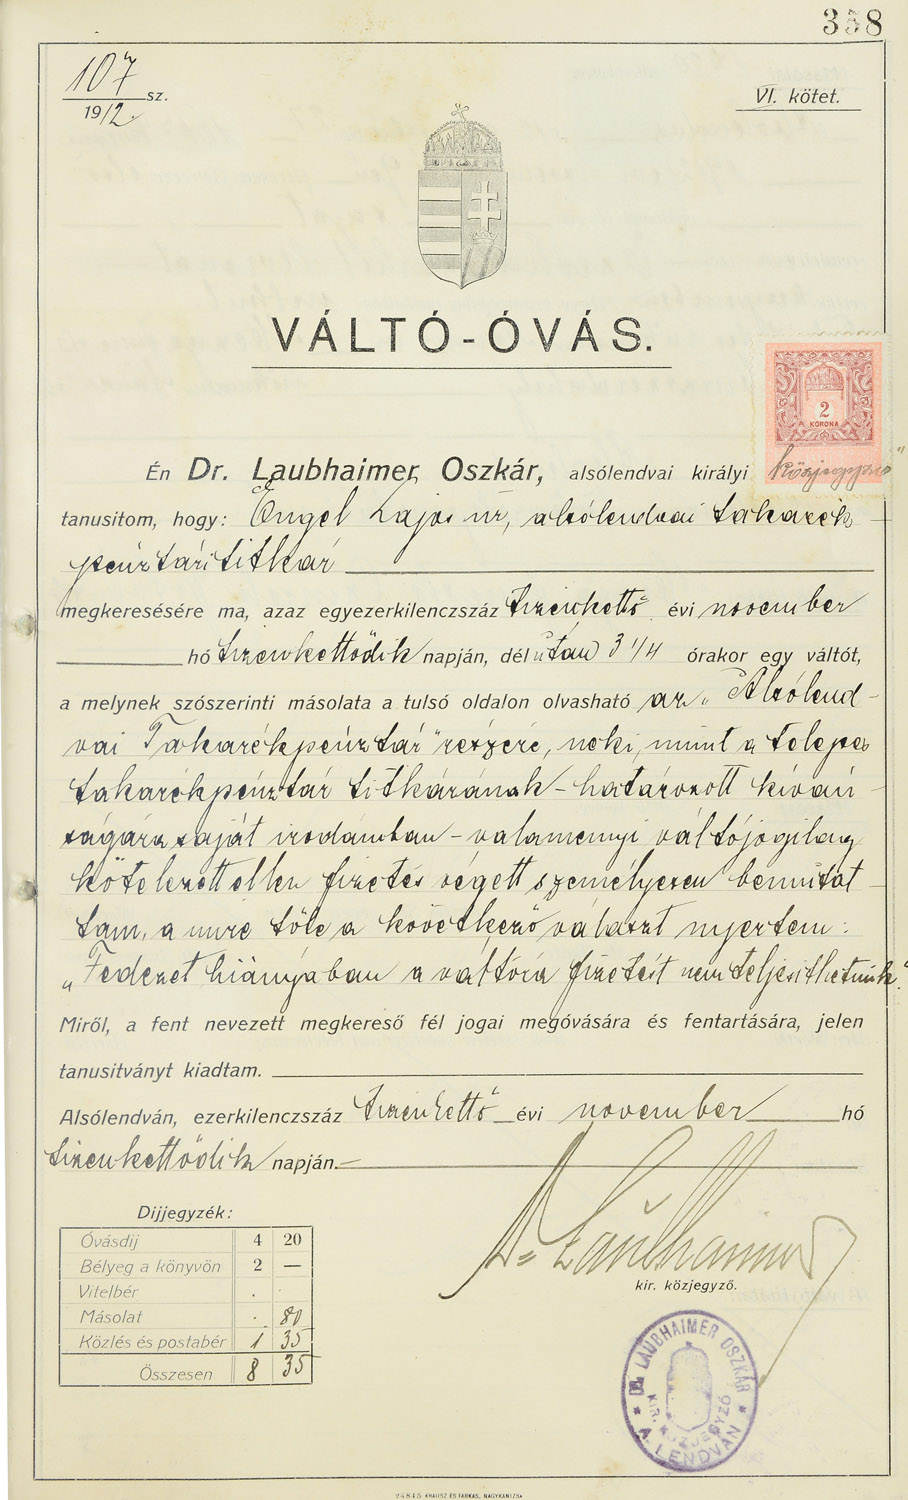 358
107
1912. sz.
VI. kötet.
VÁLTÓ-ÓVÁS.
2
KORONA
Én Dr. Laubhaimer Oszkár, alsólendvai királyi közjegyző
tanusitom, hogy: Engel Lajos úr, alsólendvai takarék
pénztári titkár
megkeresésére ma, azaz egyezerkilenczszáz tizenkettő évi november
hó tizenkettődik napján, délután 3 1/4 órakor egy váltót,
a melynek szószerinti másolata a tulsó oldalon olvasható az „Alsólend-
vai Takarékpénztár" részére, neki, mint a telepes
takarékpénztár titkárának – határozott kiván-
ságára saját irodámban – valamennyi váltójogilag
kötelezett ellen fizetés végett személyesen bemutat-
tam, a mire tőle a következő választ nyertem:
„Fedezet hiányában a váltóra fizetést nem teljesithetünk."
Miről, a fent nevezett megkereső fél jogai megóvására és fentartására, jelen
tanusitványt kiadtam.
Alsólendván, ezerkilenczszáz tizenkettő évi november hó
tizenkettődik napján.–
Dr Laubhaimer
kir. közjegyző.
Dijjegyzék:
Óvásdij 4 20
Bélyeg a könyvön 2 —
Vitelbér . .
Másolat . 80
Közlés és postabér 1 35
Összesen 8 35
DR. LAUBHAIMER OSZKÁR
KIR. KÖZJEGYZŐ
* A. LENDVÁN *
24845 KRAUSZ ÉS FARKAS, NAGYKANIZSA